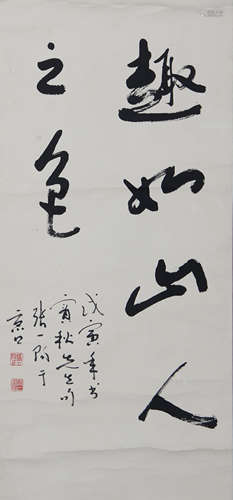 趣如山人
之色
戊寅年书
宾秋先生
张一于
京口